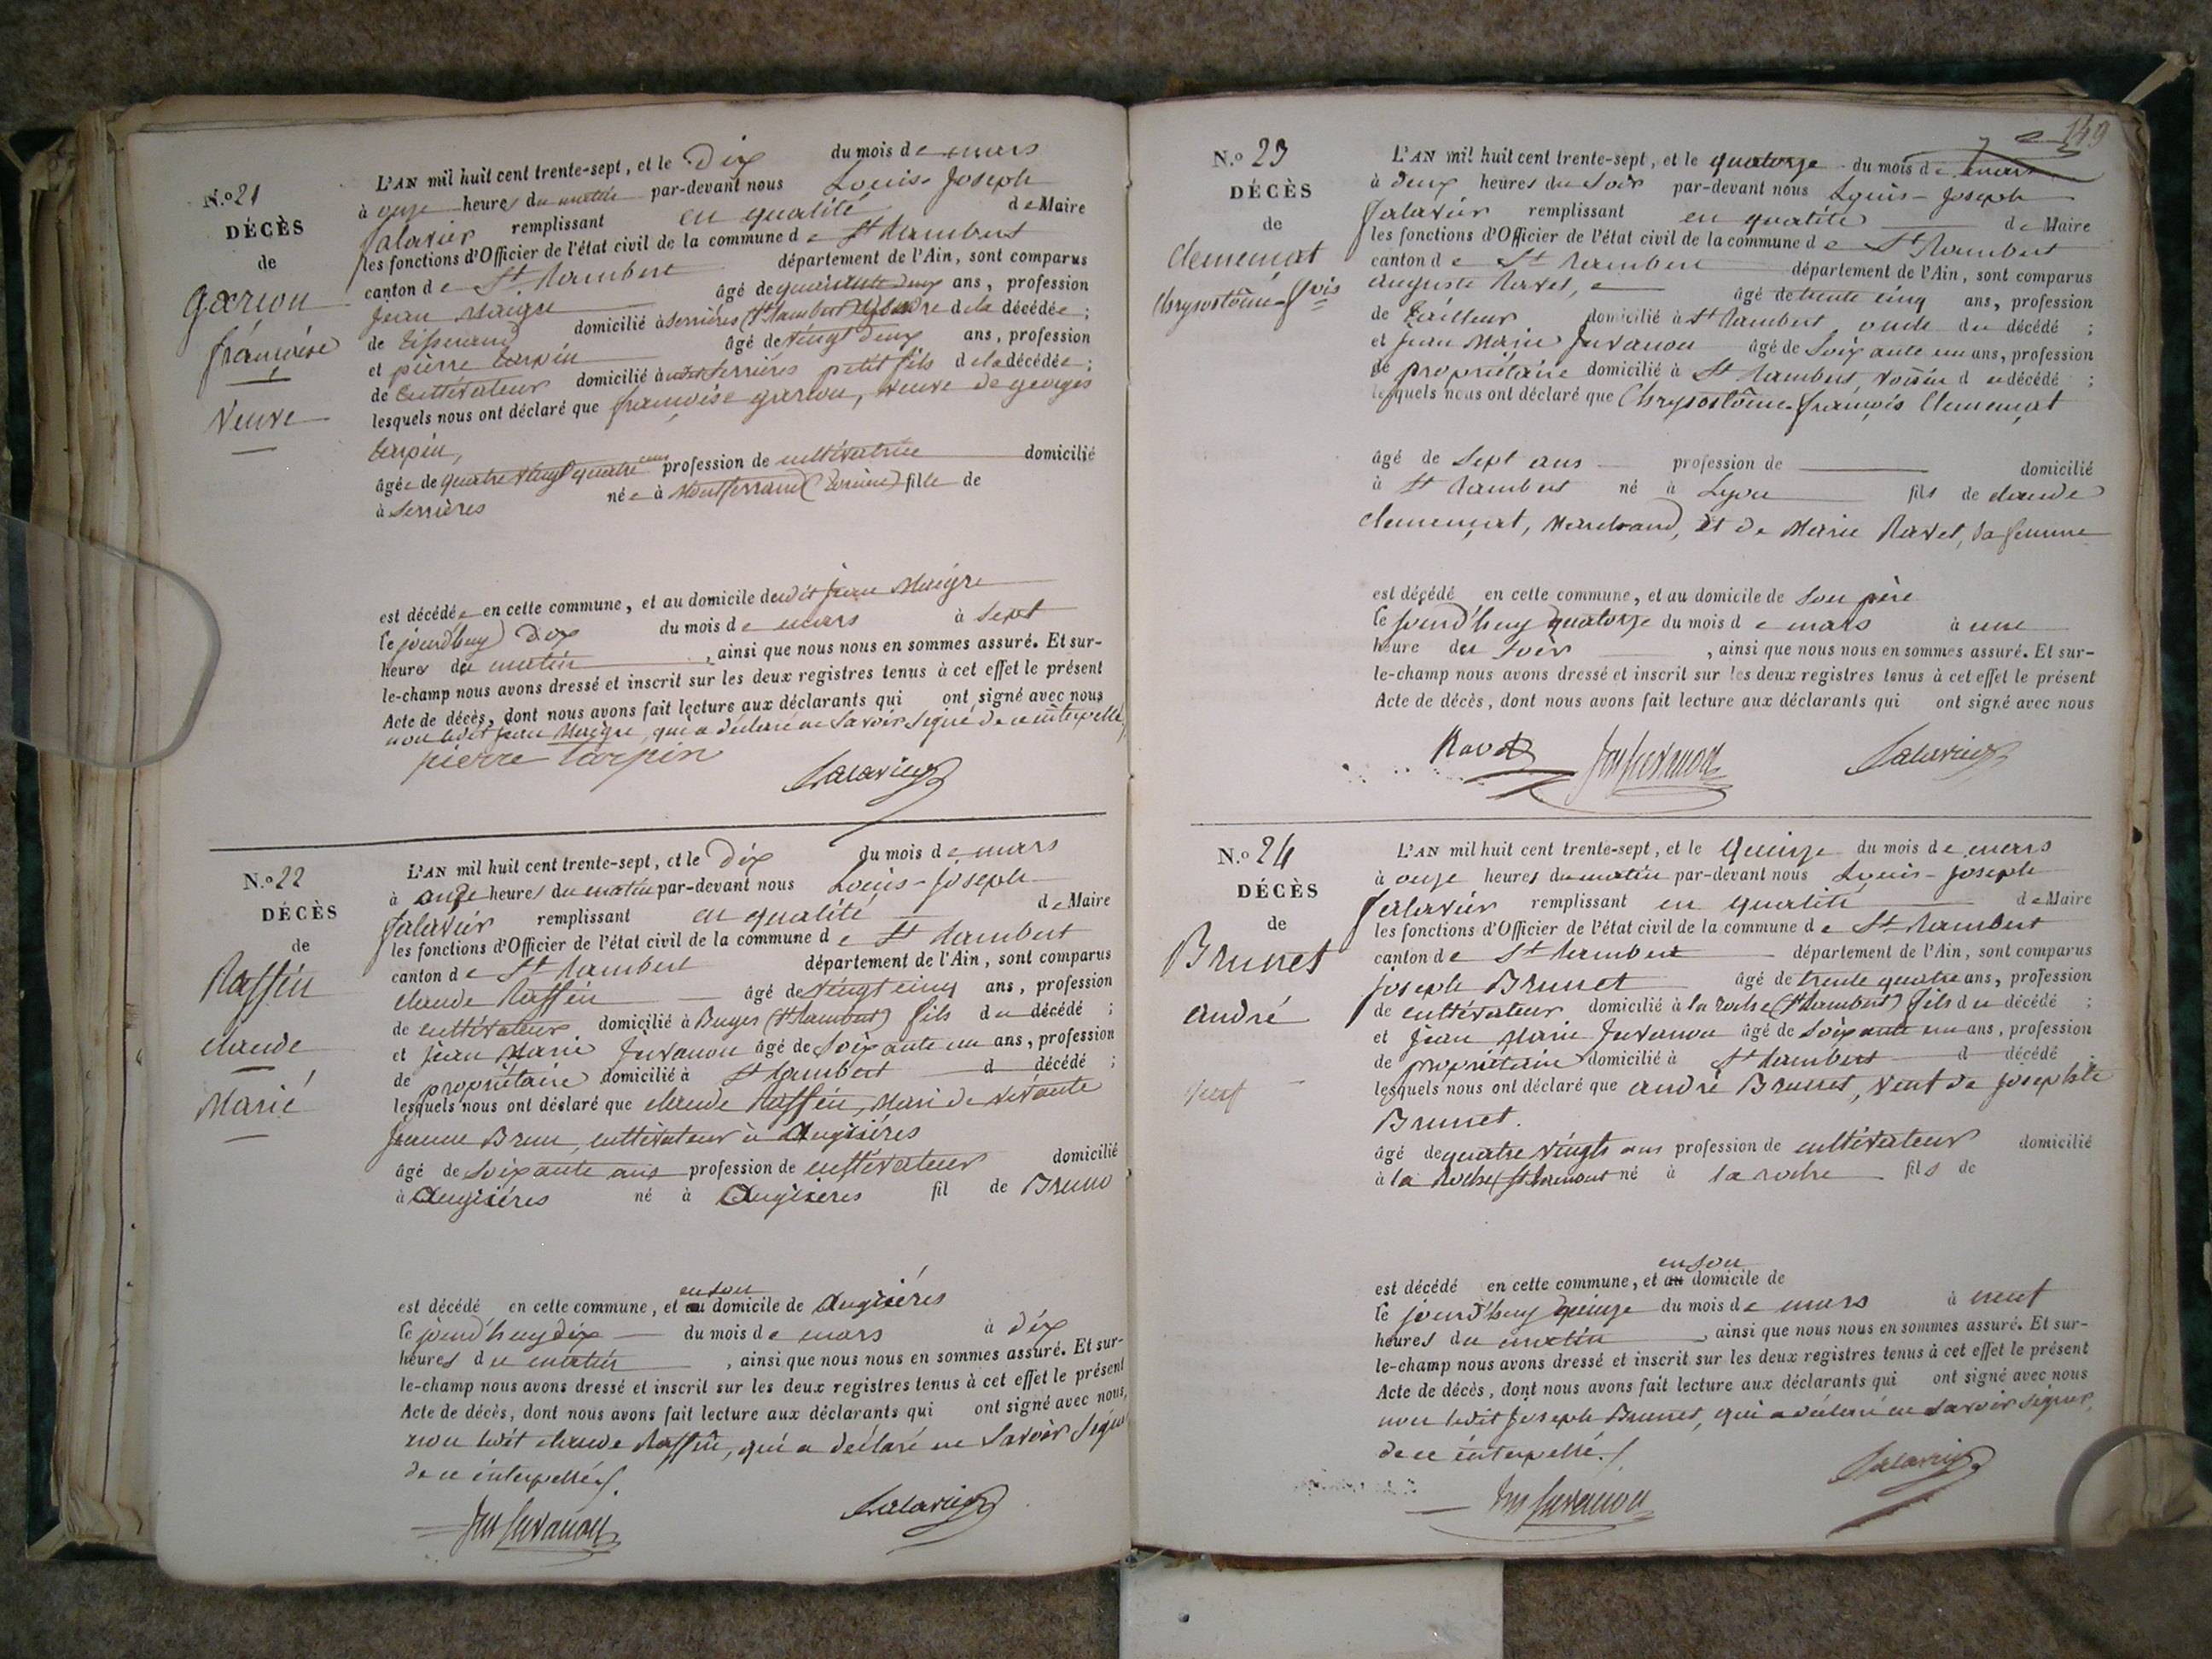 N.o 21
DÉCÈS
de
garçon
françoise
Veuve
L'AN mil huit cent trente-sept, et le Dix du mois de mars
à onze heures du matin par-devant nous Louis-Joseph
Salavier remplissant en qualité de Maire
les fonctions d'Officier de l'état civil de la commune de St Rambert
canton de St Rambert département de l'Ain, sont comparus
Jean Maigre âgé de quarante deux ans, profession
de Tisserand domicilié à Serrières (St Rambert) gendre de la décédée;
et pierre tarpin âgé de vingt deux ans, profession
de Cultivateur domicilié à Serrières petit fils de la décédée;
lesquels nous ont déclaré que françoise garçon, veuve de georges
tarpin,
âgée de quatre vingt quatre ans profession de cultivatrice domicilié
à Serrières née à Montferrand fille de
est décédée en cette commune, et au domicile dudit jean Maigre
le jourd'huy Dix du mois de mars à Sept
heures du matin, ainsi que nous nous en sommes assuré. Et sur-
le-champ nous avons dressé et inscrit sur les deux registres tenus à cet effet le présent
Acte de décès, dont nous avons fait lecture aux déclarants qui ont signé avec nous
non ledit jean Maigre, qui a déclaré ne Savoir Signé de ce interpellé
pierre tarpin
Salavier
N.o 22
DÉCÈS
de
Raffin
claude
Marié
L'AN mil huit cent trente-sept, et le Dix du mois de mars
à onze heures du matin par-devant nous Louis-Joseph
Salavier remplissant en qualité de Maire
les fonctions d'Officier de l'état civil de la commune de St Rambert
canton de St Rambert département de l'Ain, sont comparus
claude Raffin âgé de vingt cinq ans, profession
de cultivateur domicilié à Buges (St Rambert) fils du décédé;
et jean Marie Juvanon âgé de Soixante un ans, profession
de propriétaire domicilié à St Rambert d décédé;
lesquels nous ont déclaré que claude Raffin, Mari de vivante
Jeanne Brun, cultivateur à Angrières
âgé de Soixante ans profession de cultivateur domicilié
à Angrières né à Angrières fil de Bruno
est décédé en cette commune, et au en son domicile de Angrières
le jourd'huy dix du mois de mars à dix
heures du matin, ainsi que nous nous en sommes assuré. Et sur-
le-champ nous avons dressé et inscrit sur les deux registres tenus à cet effet le présent
Acte de décès, dont nous avons fait lecture aux déclarants qui ont signé avec nous,
non ledit claude Raffin, qui a déclaré ne Savoir Signer
de ce interpellé.
Jm Juvanon
Salavier
149
N.o 23
DÉCÈS
de
Clemençat
Chrysostôme-fois
L'AN mil huit cent trente-sept, et le quatorze du mois de mars
à deux heures du Soir par-devant nous Louis-Joseph
Salavier remplissant en qualité de Maire
les fonctions d'Officier de l'état civil de la commune de St Rambert
canton de St Rambert département de l'Ain, sont comparus
Auguste Ravet, âgé de trente cinq ans, profession
de Tailleur domicilié à St Rambert oncle du décédé;
et Jean Marie Juvanon âgé de Soixante un ans, profession
de propriétaire domicilié à St Rambert, voisin du décédé;
lesquels nous ont déclaré que Chrysostôme-françois Clemençat
âgé de Sept ans profession de domicilié
à St Rambert né à Lyon fils de claude
clemençat, Marchand, et de Marie Ravet, Sa femme
est décédé en cette commune, et au domicile de Son père
le Jourd'huy quatorze du mois de mars à une
heure du Soir, ainsi que nous nous en sommes assuré. Et sur-
le-champ nous avons dressé et inscrit sur les deux registres tenus à cet effet le présent
Acte de décès, dont nous avons fait lecture aux déclarants qui ont signé avec nous
Ravet Jm Juvanon Salavier
N.o 24
DÉCÈS
de
Brunet
André
Veuf
L'AN mil huit cent trente-sept, et le Quinze du mois de mars
à onze heures du matin par-devant nous Louis-Joseph
Salavier remplissant en qualité de Maire
les fonctions d'Officier de l'état civil de la commune de St Rambert
canton de St Rambert département de l'Ain, sont comparus
joseph Brunet âgé de trente quatre ans, profession
de cultivateur domicilié à la roche (St Rambert) fils du décédé;
et Jean Marie Juvanon âgé de Soixante un ans, profession
de propriétaire domicilié à St Rambert d décédé
lesquels nous ont déclaré que andré Brunet, veuf de josephte
Brunet.
âgé de quatre vingts ans profession de cultivateur domicilié
à la Roche né à la roche fils de
est décédé en cette commune, et au en son domicile de
le jourd'huy quinze du mois de mars à neuf
heures du matin, ainsi que nous nous en sommes assuré. Et sur-
le-champ nous avons dressé et inscrit sur les deux registres tenus à cet effet le présent
Acte de décès, dont nous avons fait lecture aux déclarants qui ont signé avec nous
non ledit Joseph Brunet, qui a déclaré ne Savoir Signer,
de ce interpellé.
Jm Juvanon
Salavier